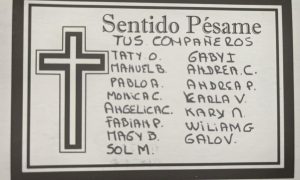 Sentido Pésame
TUS COMPAÑEROS
TATY O. GABY I
MANUEL B. ANDREA C.
PABLO A. ANDREA P.
MONICA C. KARLA V.
ANGELICA C. KARY N
FABIAN P. WILIAM G
MAGY B. GALO V.
SOL M.